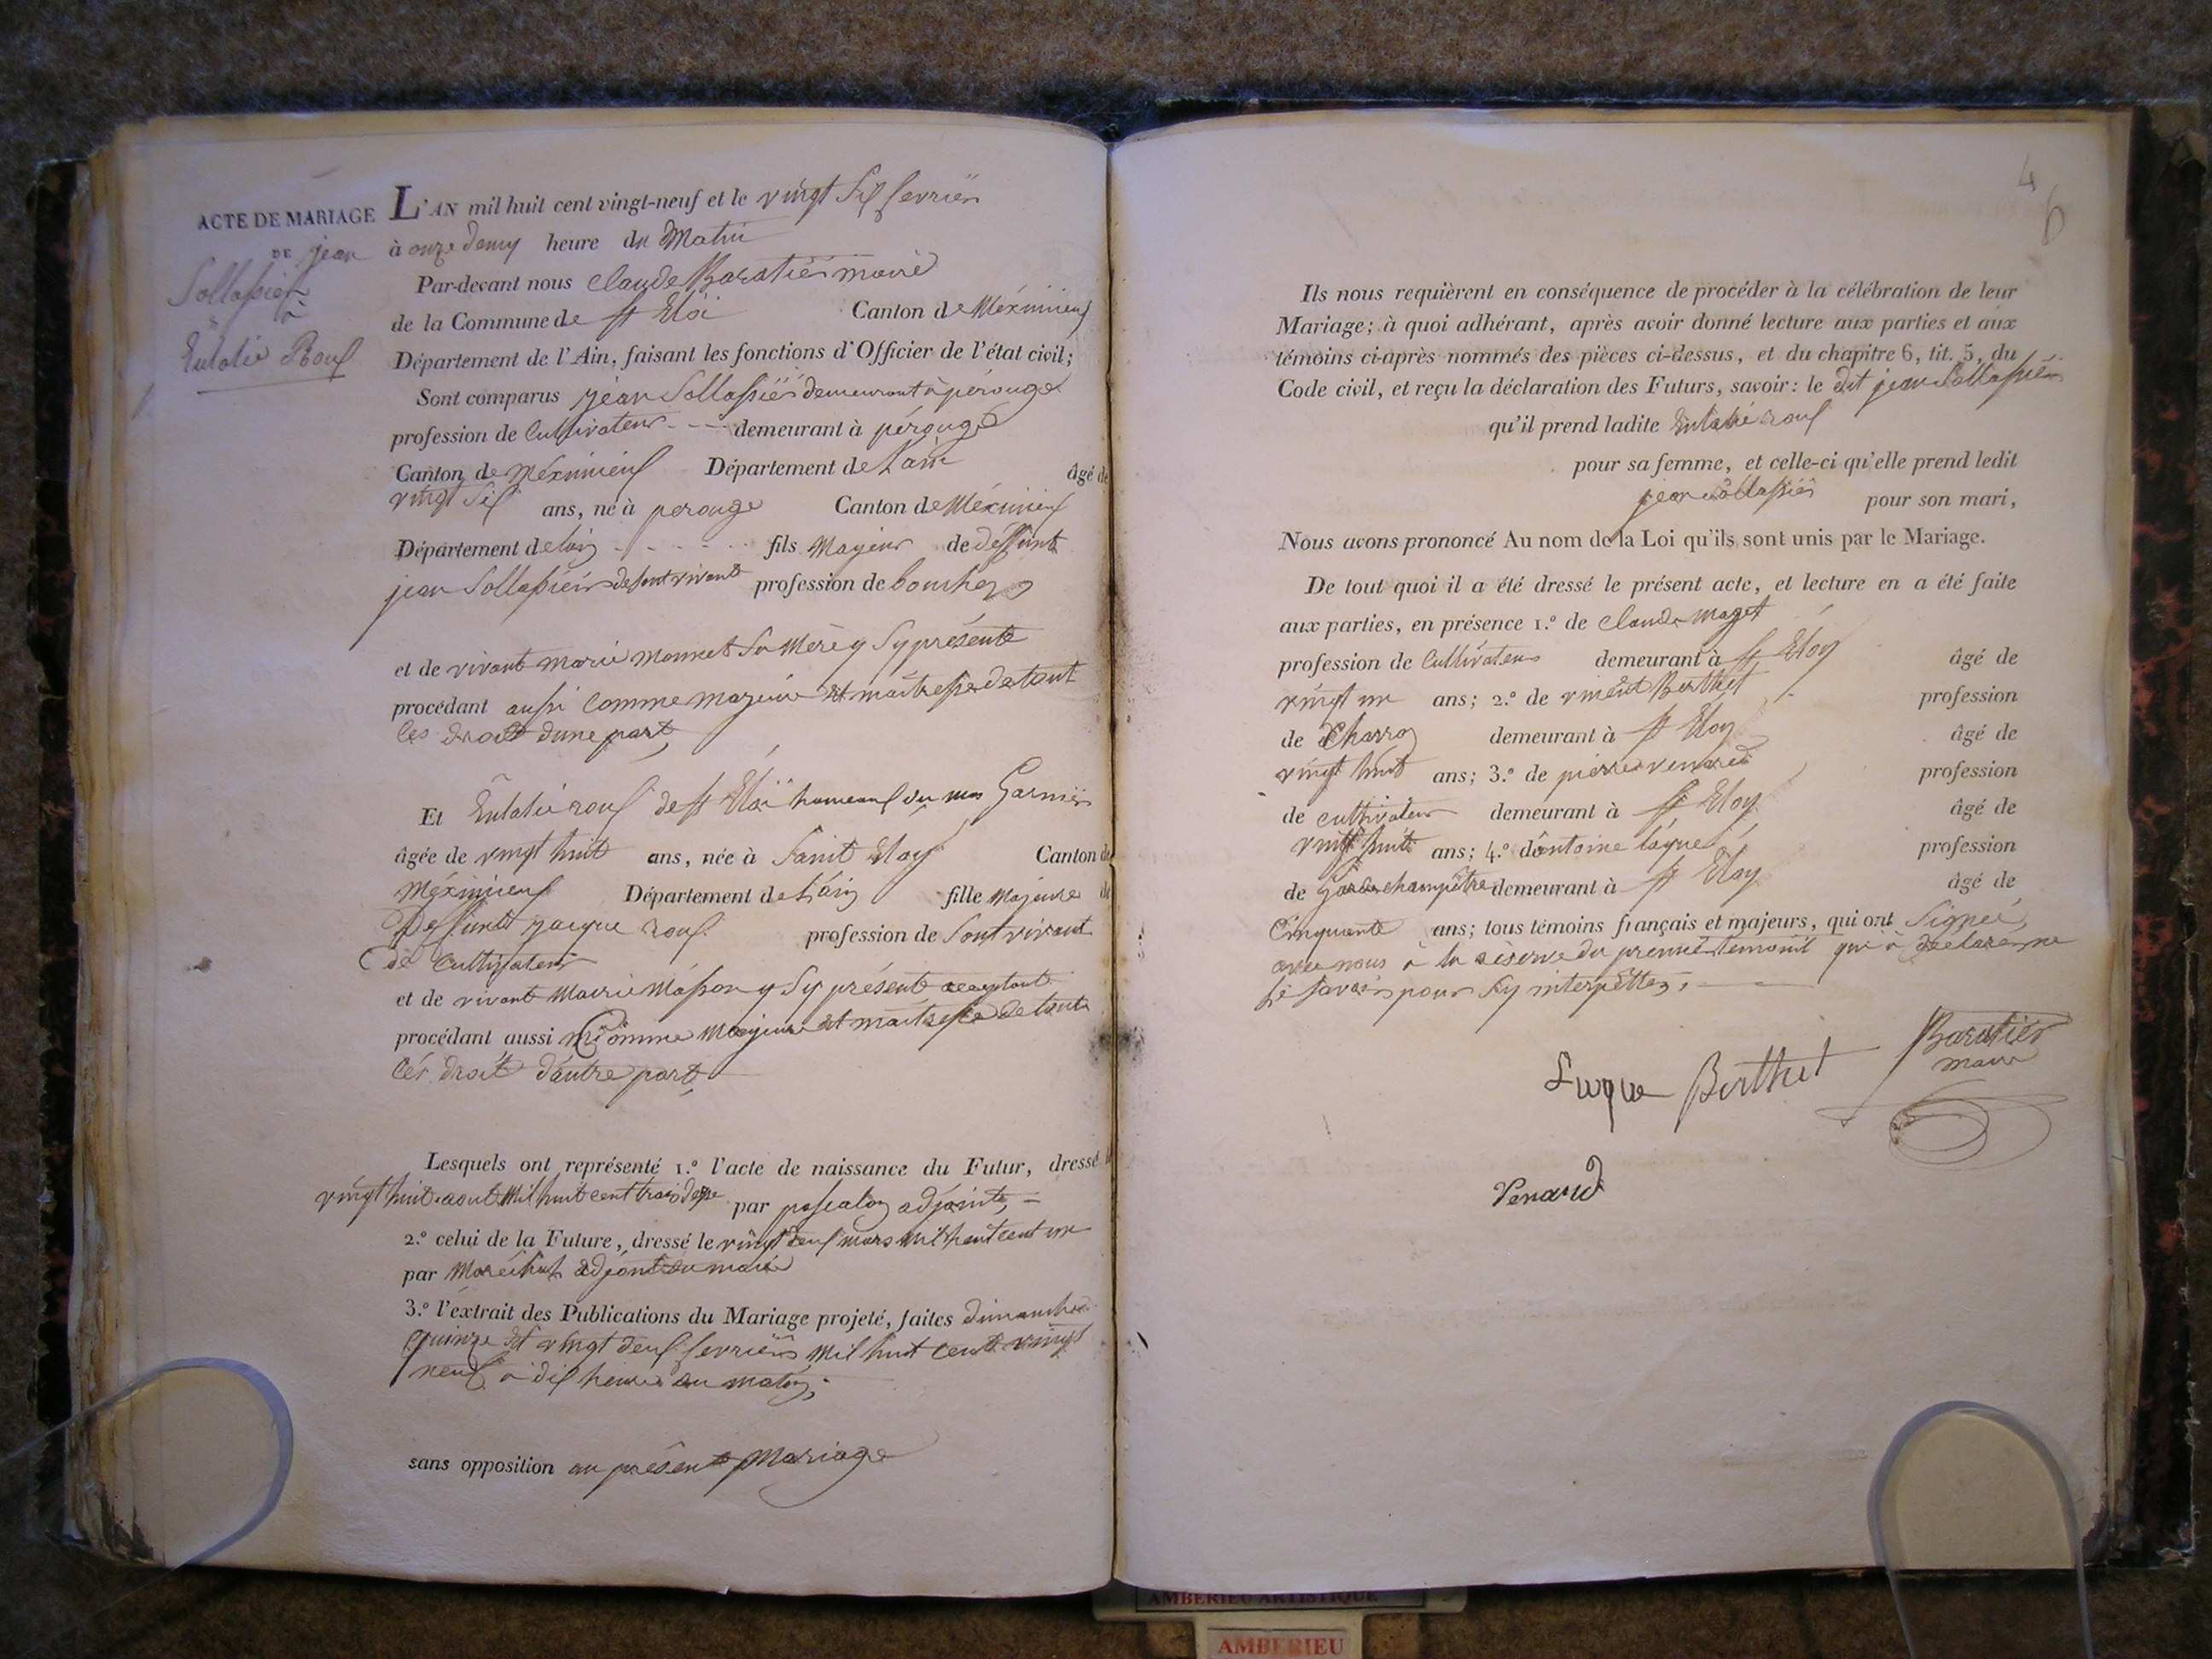 ACTE DE MARIAGE
DE jean
Sollassier
à
Eulalie Roux
L'AN mil huit cent vingt-neuf et le vingt six fevrier
à onze demy heure du Matin
Par-devant nous Claude Baratier maire
de la Commune de st Eloi Canton de Méximieux
Département de l'Ain, faisant les fonctions d'Officier de l'état civil;
Sont comparus jean Sollassier demeurant à pérouge
profession de Cultivateur demeurant à pérouge
Canton de Méximieux Département de Lain âgé de
vingt six ans, né à perouge Canton de Méximieux
Département de lain fils Majeur de deffunt
jean Sollassier de sont vivant profession de boucher
et de vivant marie monnet Sa Mère y Sy présente
procédant aussi Comme majeur et maitresse de tout
ces droit dune part
Et Eulalie roux de st Eloi hameaux du mas Garnier
âgée de vingt huit ans, née à Saint Eloy Canton de
Méximieux Département de Lain fille Majeure de
Deffunt jacque roux profession de Sont vivant
de Cultivateur
et de vivant Marie Masson y Sy présente acceptant
procédant aussi Comme Majeure et maitresse de tout
Ces droit dautre part
Lesquels ont représenté 1.º l'acte de naissance du Futur, dressé le
vingt huit aout Mil huit cent trois par adjoint
2.º celui de la Future, dressé le vingt deux mars mil huit cent un
par Maréchal adjoint du maire
3.º l'éxtrait des Publications du Mariage projeté, faites dimanche
quinze et vingt deux fevrier Mil huit Cent vingt
neuf à dix heures du matin
sans opposition au présent Mariage
4
6
Ils nous requièrent en conséquence de procéder à la célébration de leur
Mariage; à quoi adhérant, après avoir donné lecture aux parties et aux
témoins ci-après nommés des pièces ci-dessus, et du chapitre 6, tit. 5, du
Code civil, et reçu la déclaration des Futurs, savoir: le dit jean Sollassier
qu'il prend ladite Eulalie roux
pour sa femme, et celle-ci qu'elle prend ledit
jean Sollassier pour son mari,
Nous avons prononcé Au nom de la Loi qu'ils sont unis par le Mariage.
De tout quoi il a été dressé le présent acte, et lecture en a été faite
aux parties, en présence 1.º de Claude Maget
profession de Cultivateur demeurant à st Eloy âgé de
vingt un ans; 2.º de Berthet profession
de Charron demeurant à st Eloy âgé de
vingt huit ans; 3.º de pierre venard profession
de cultivateur demeurant à st Eloy âgé de
vingt huit ans; 4.º dantoine luque profession
de Garde champêtre demeurant à st Eloy âgé de
Cinquante ans; tous témoins français et majeurs, qui ont Signé
avec nous à la réserve du premier temoint qui à declaré ne
le savoir pour Sy interpetter
Luque Berthet Baratier
maire
Venard
AMBERIEU ARTISTIQUE
AMBERIEU